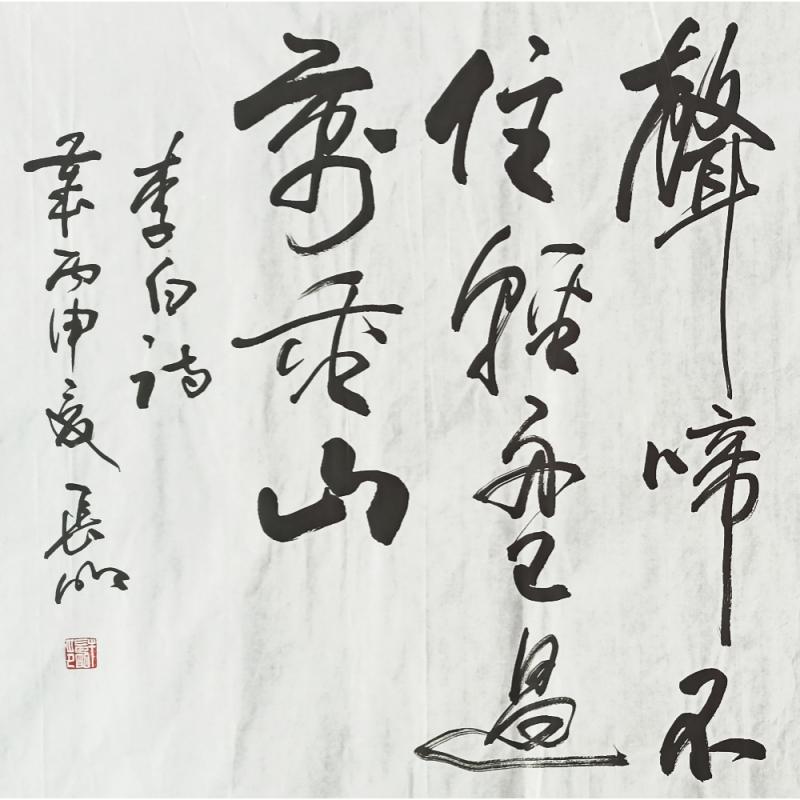 聲啼不
住輕舟已過
萬重山
李白詩
丙申夏長